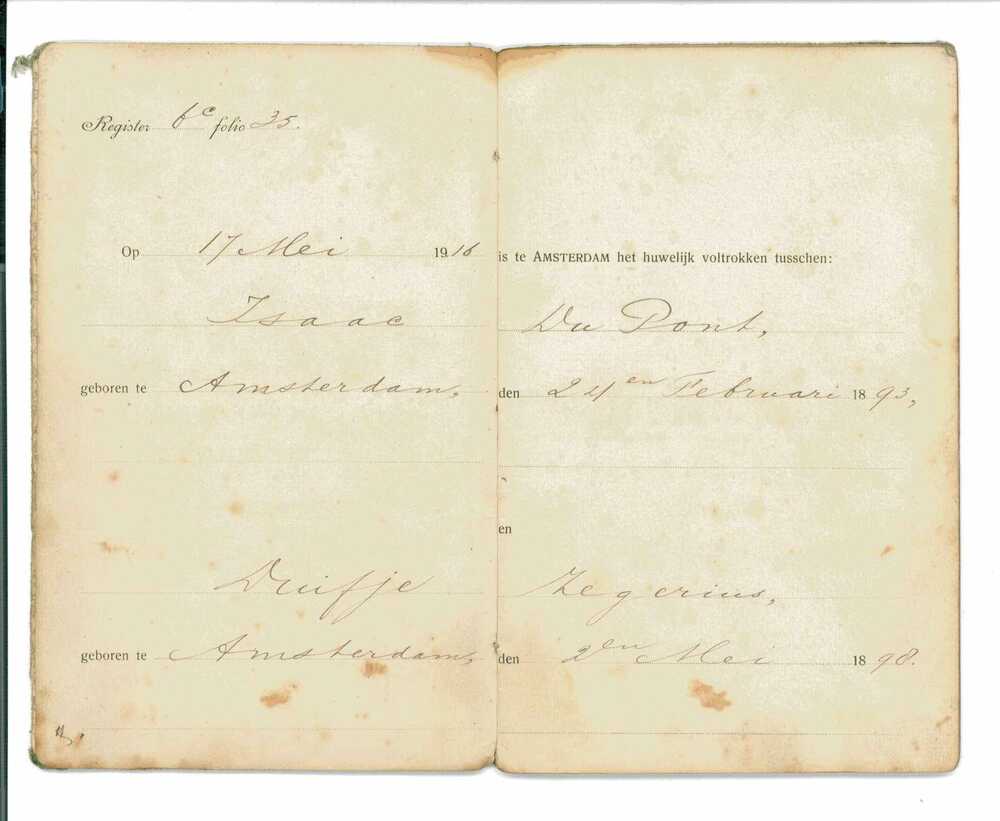 Register 6c folio 35.
Op 17 Mei 1916 is te AMSTERDAM het huwelijk voltrokken tusschen:
Isaac Du Pont,
geboren te Amsterdam, den 24en Februari 1893,
en
Duifje Zegerius,
geboren te Amsterdam, den 2en Mei 1898.